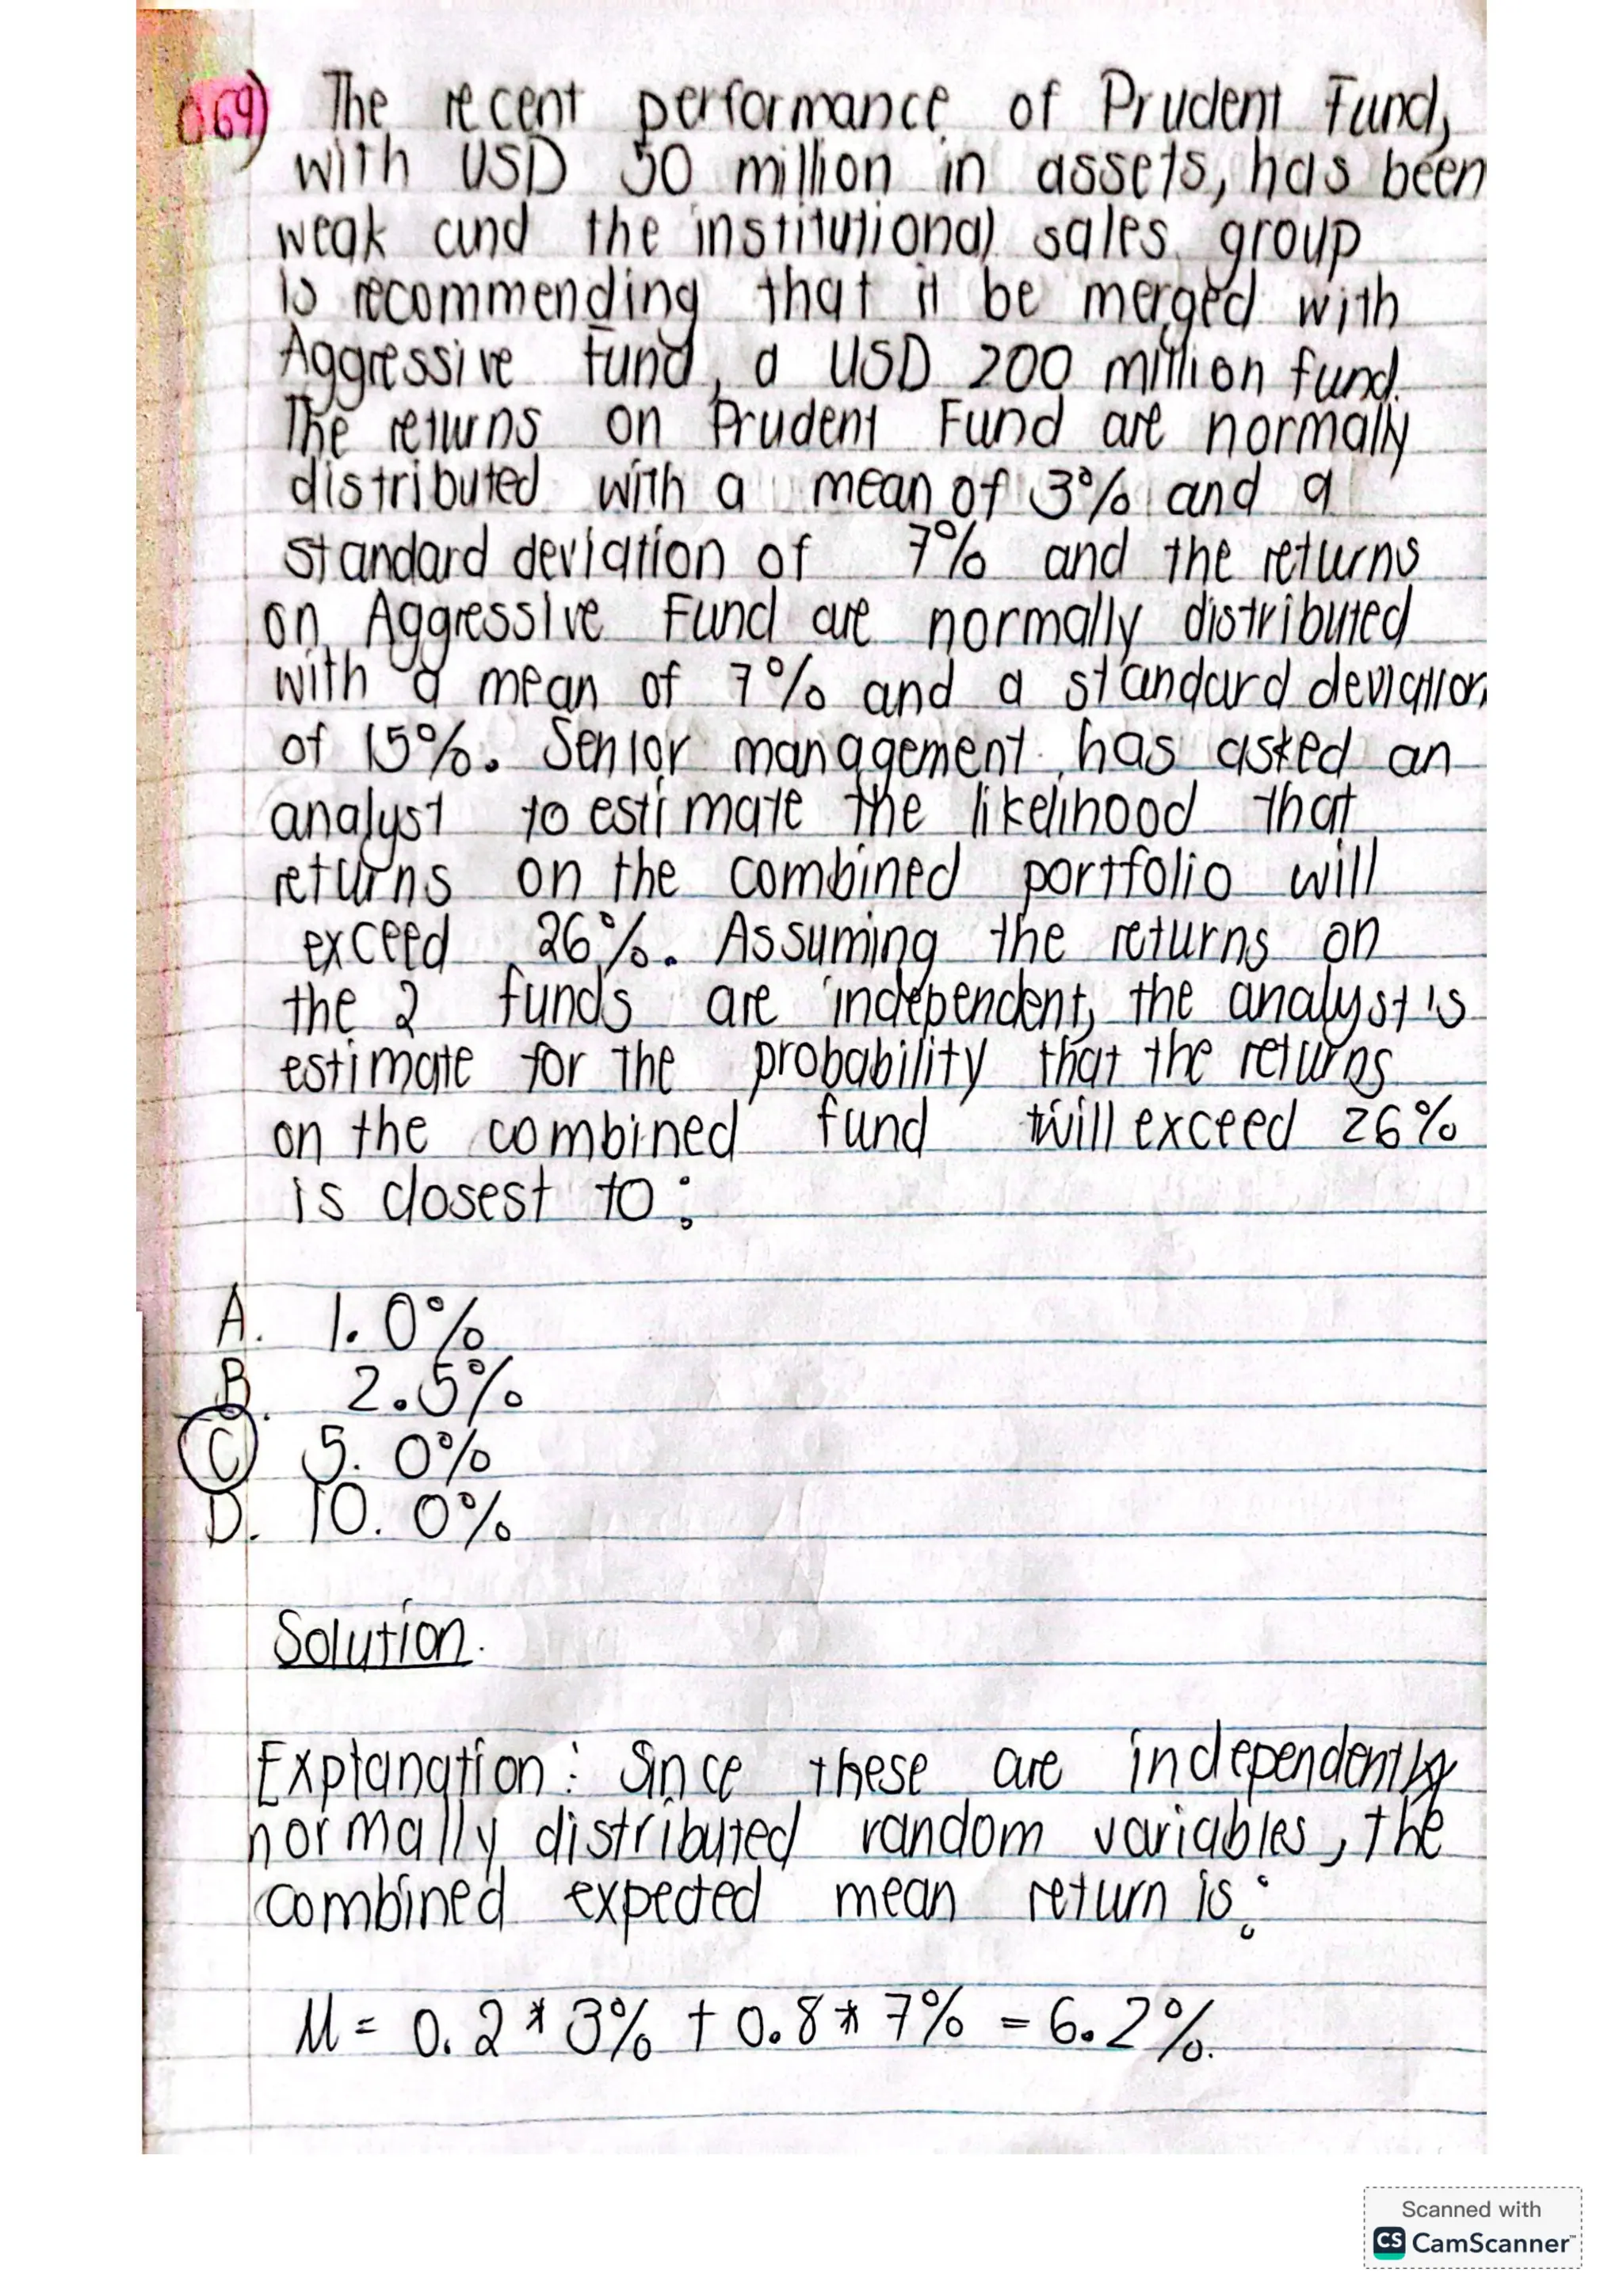 Q69) The recent performance of Prudent Fund,
with USD 50 million in assets, has been
weak and the institutional sales group
is recommending that it be merged with
Aggressive Fund, a USD 200 million fund.
The returns on Prudent Fund are normally
distributed with a mean of 3% and a
standard deviation of 7% and the returns
on Aggressive Fund are normally distributed
with a mean of 7% and a standard deviation
of 15%. Senior management has asked an
analyst to estimate the likelihood that
returns on the combined portfolio will
exceed 26%. Assuming the returns on
the 2 funds are independent, the analyst's
estimate for the probability that the returns
on the combined fund will exceed 26%
is closest to:
A. 1.0%
B. 2.5%
C 5.0%
D. 10.0%
Solution.
Explanation: Since these are independently
normally distributed random variables, the
combined expected mean return is:
M = 0.2 * 3% + 0.8 * 7% = 6.2%.
Scanned with
CS CamScanner™